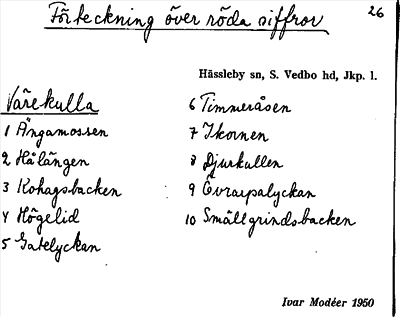 Förteckning över röda siffror
26
Hässleby sn, S. Vedbo hd, Jkp. l.
Värekulla
1 Ängamossen
2 Hålängen
3 Kohagsbacken
4 Högelid
5 Gatelyckan
6 Timmeråsen
7 Ikornen
8 Djurkullen
9 Övrarpalyckan
10 Smällgrindsbacken
Ivar Modéer 1950